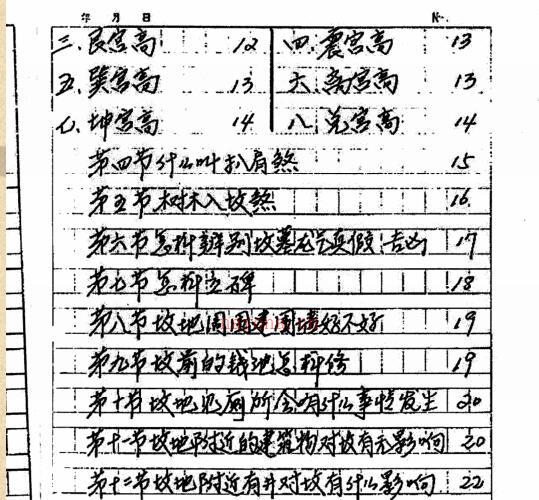 年 月 日 №.
三、艮宫高 12 四、震宫高 13
五、巽宫高 13 六、离宫高 13
七、坤宫高 14 八、兑宫高 14
第四节什么叫扒肩煞 15
第五节树木入坟煞 16
第六节怎样辨别坟墓龙穴真假、吉凶 17
第七节怎样立碑 18
第八节坟地周围建围墙好不好 19
第九节坟前的钱池怎样修 19
第十节坟地见厕所会有什么事情发生 20
第十一节坟地附近的建筑物对坟有无影响 20
第十二节坟地附近有井对坟有什么影响 22